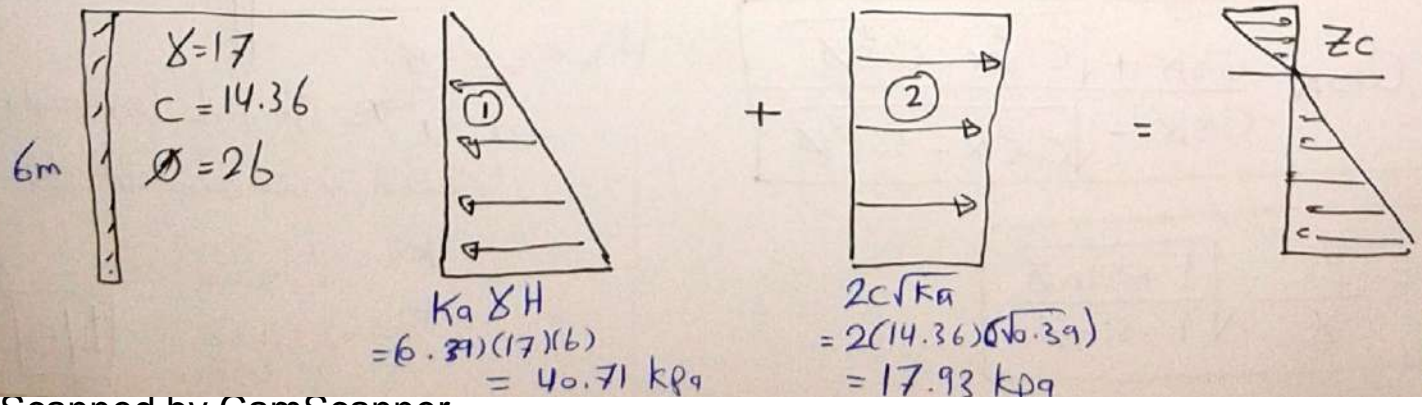 γ=17
c = 14.36
Ø = 26
6m
①
+
②
=
Zc
Ka γ H
=(0.39)(17)(6)
= 40.71 kPa
2c√Ka
= 2(14.36)(√0.39)
= 17.93 kPa
Scanned by CamScanner